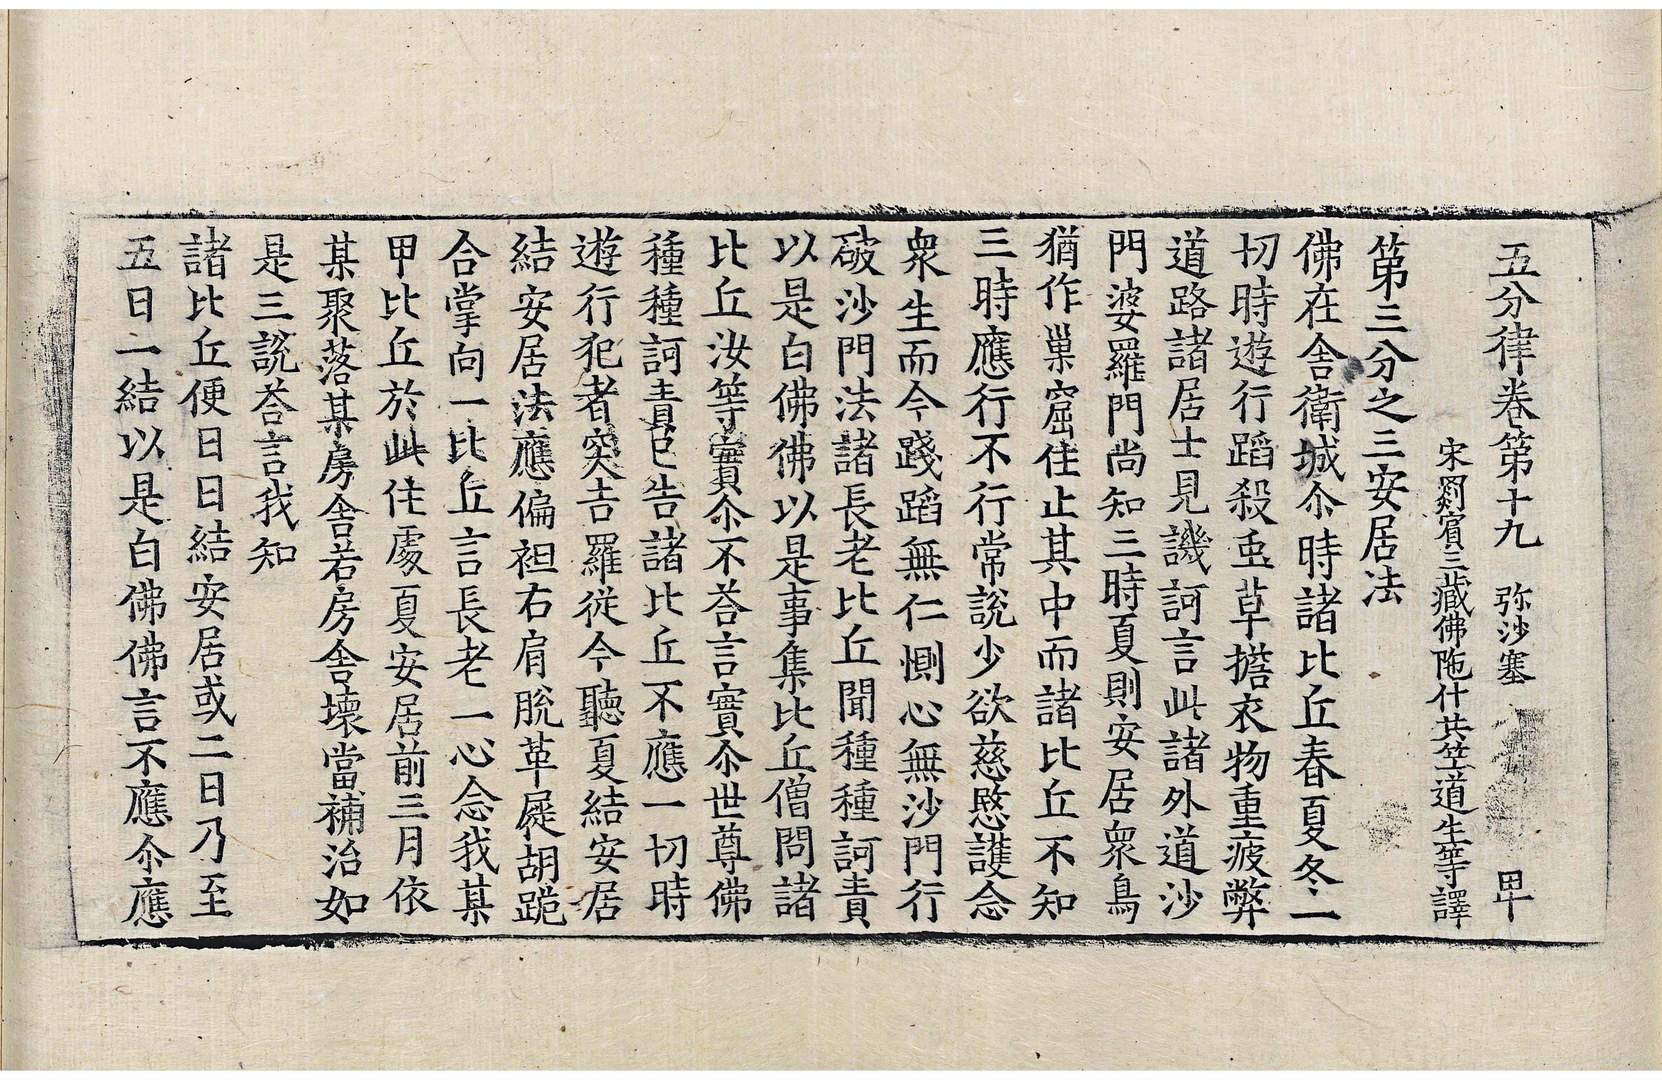 五分律卷第十九 弥沙塞 㽞
宋罽賓三藏佛陁什共竺道生等譯
第三分之三安居法
佛在舍衛城尒時諸比丘春夏冬一
切時遊行蹈殺䖝草擔衣物重疲弊
道路諸居士見譏訶言此諸外道沙
門婆羅門尚知三時夏則安居衆鳥
猶作巢窟住止其中而諸比丘不知
三時應行不行常說少欲慈愍護念
衆生而今踐蹈無仁惻心無沙門行
破沙門法諸長老比丘聞種種訶責
以是白佛佛以是事集比丘僧問諸
比丘汝等實尒不荅言實尒世尊佛
種種訶責已告諸比丘不應一切時
遊行犯者突吉羅從今聽夏結安居
結安居法應偏袒右肩脫革屣胡跪
合掌向一比丘言長老一心念我某
甲比丘於此住處夏安居前三月依
某聚落某房舍若房舍壞當補治如
是三說荅言我知
諸比丘便日日結安居或二日乃至
五日一結以是白佛佛言不應尒應